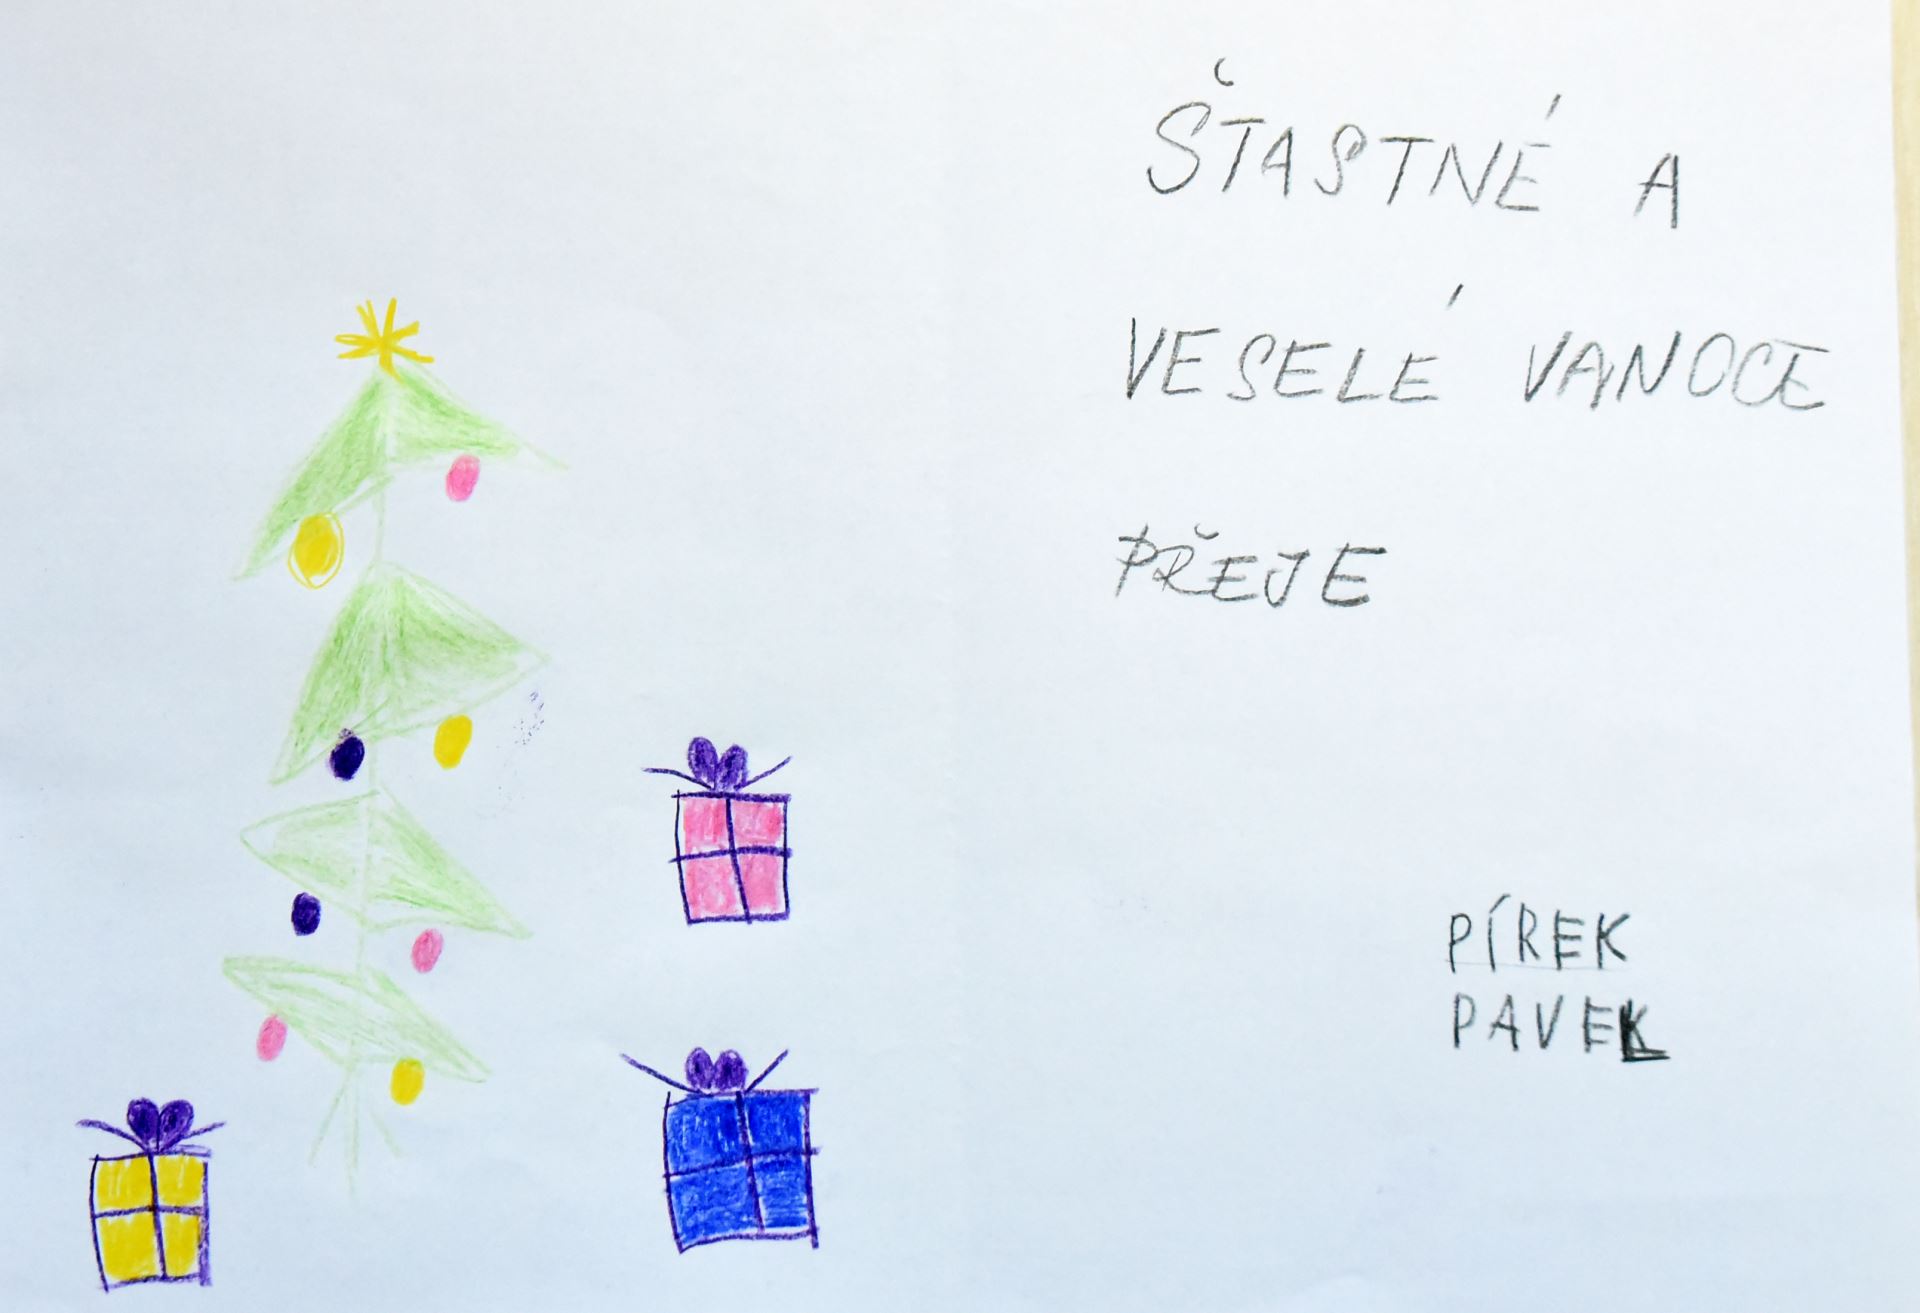 ŠTASTNÉ A
VESELÉ VANOCE
PŘEJE
PÍREK
PAVEL